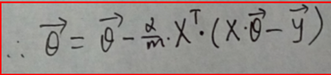 ∴ \vec{θ} = \vec{θ} - \frac{α}{m}·X^T·(X·\vec{θ} - \vec{y})